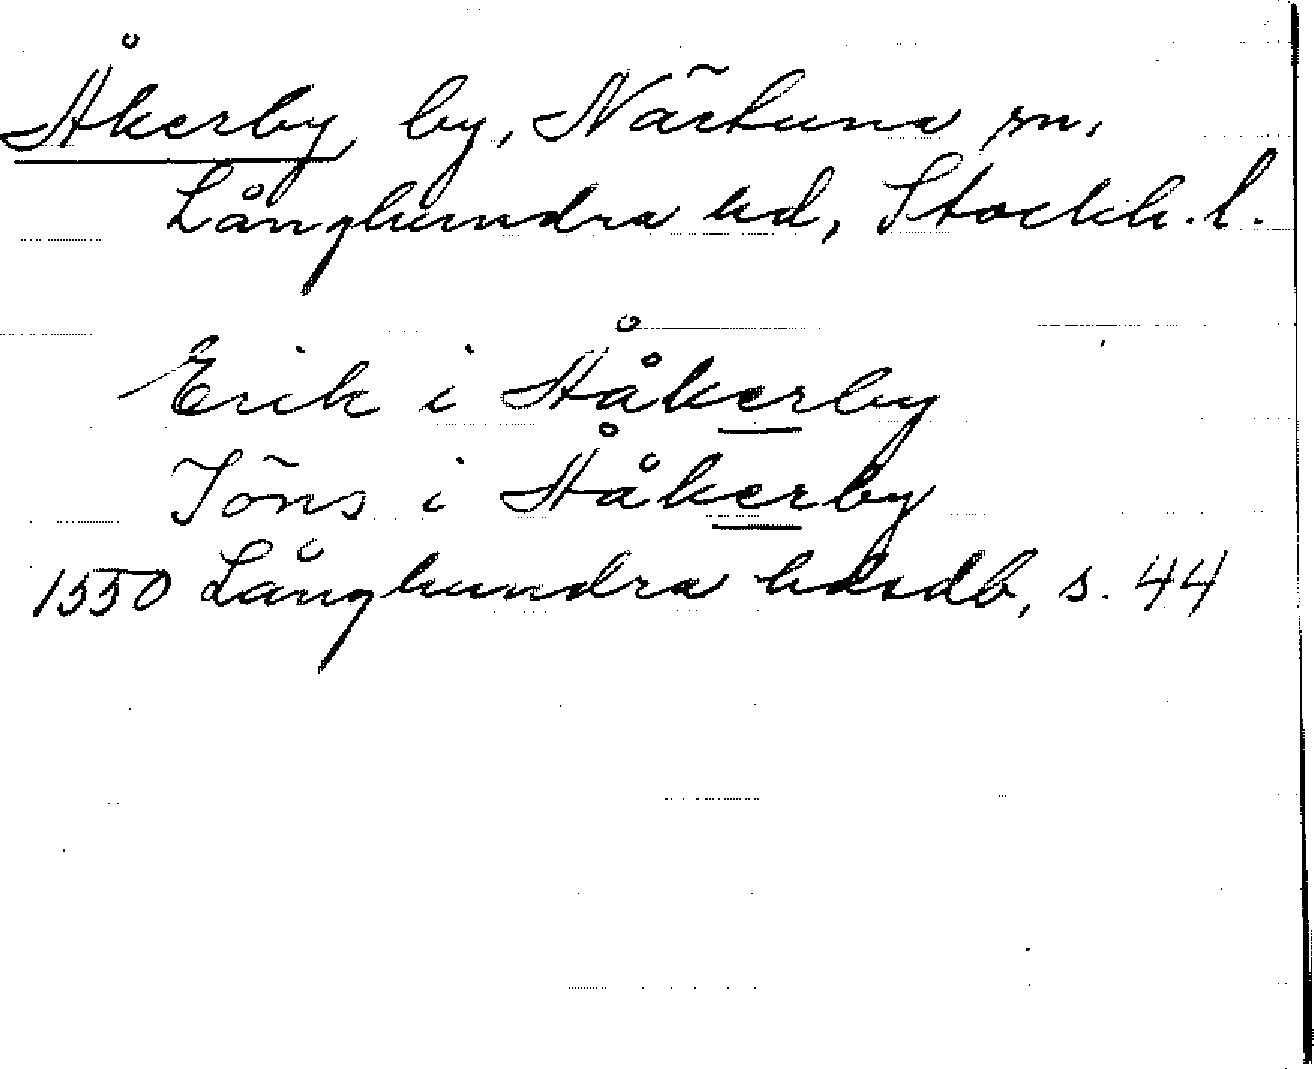 Åkerby, by, Närtuna sn,
Långhundra hd, Stockh. l.
Erik i Ååkerby
Jöns i Ååkerby
1550 Långhundra hdsdb, s. 44